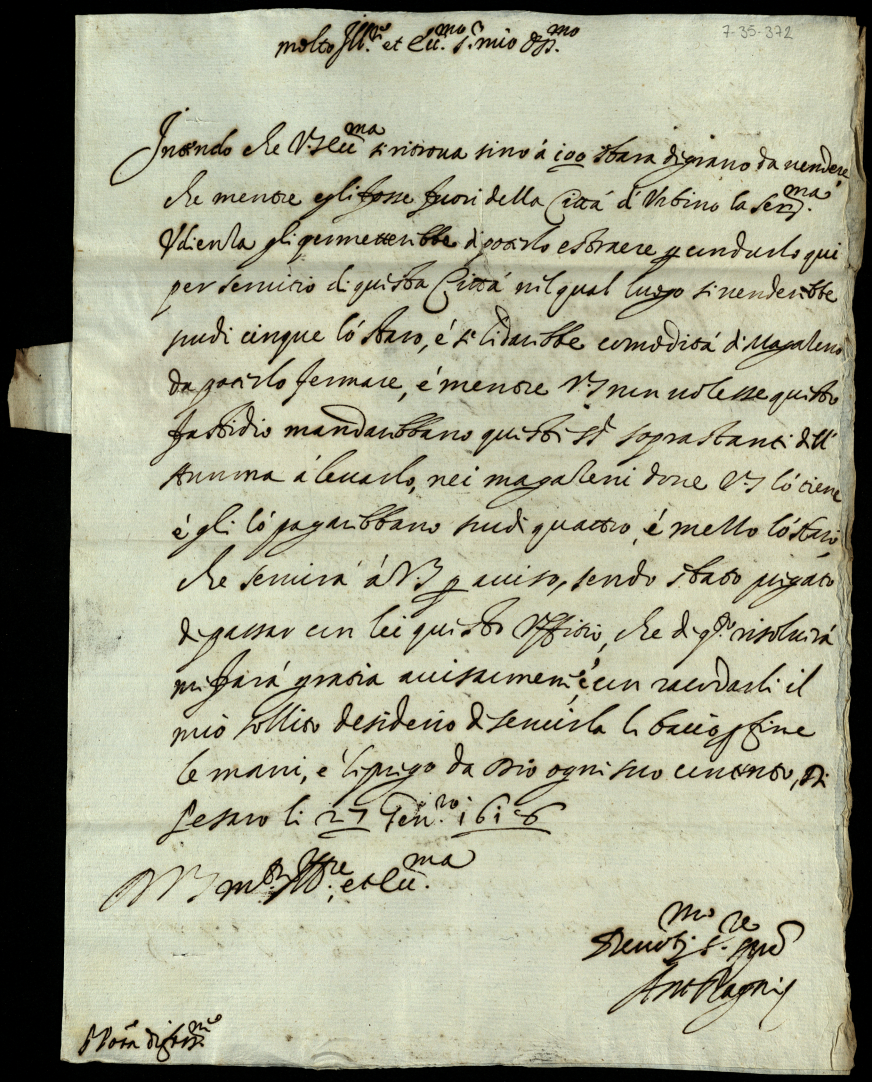 7-35-372
molto Ill.re et Ecc.mo S.r mio Oss.mo
Intendo che V.S Ecc.ma si ritroua sino à 100 stara di grano da uendere
che mentre egli fosse fuori della Città d'Vrbino la Ser.ma
Vdienza gli permetterebbe di poterlo estraere p condurlo qui
per seruitio di questa Città nel qual luogo si uenderebbe
scudi cinque lo staro, é se li darebbe comodità di Magazeno
da poterlo fermare, é mentre V.S non uolesse questo
fastidio mandarebbano questi SS.ri soprastanti dell'
Annona à leuarlo, nei magazeni doue V.S lo tiene
é gli lo pagarebbano scudi quattro, é mezzo lo staro
che seruirà à V.S p auiso, sendo stato pregato
di passar con lei questo Vffitio, che di q.to risoluirà
mi farà gratia auisarmene, é con racordarli il
mio sollito desiderio di seruirla li bacio p fine
le mani, e li prego da Dio ogni suo contento, Di
Pesaro li 27 Gen.ro 1616
D V.S m.to Ill.re et Ecc.ma
Deuot.mo S.re
Ant